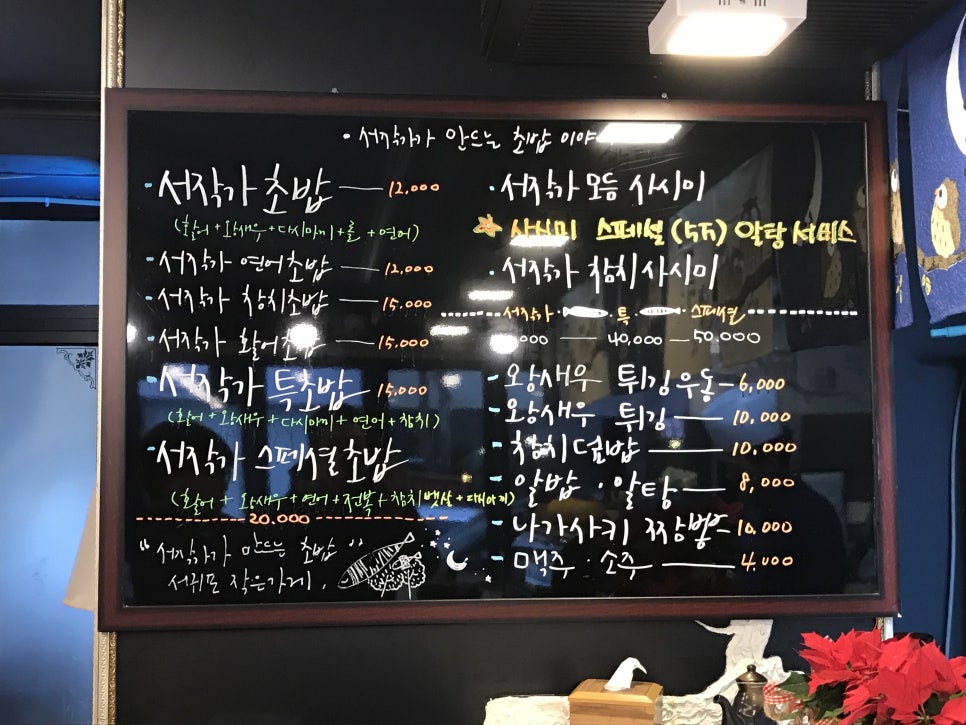 · 서작가가 만드는 초밥 이야
- 서작가 초밥 — 12,000
(활어 + 왕새우 + 다시마끼 + 롤 + 연어)
- 서작가 연어초밥 — 12,000
- 서작가 참치초밥 — 15,000
- 서작가 활어초밥 — 15,000
- 서작가 특초밥 — 15,000
(활어 + 왕새우 + 다시마끼 + 연어 + 참치)
- 서작가 스페셜초밥
(활어 + 왕새우 + 연어 + 전복 + 참치뱃살 + 다시마끼)
20.000
"서작가가 만드는 초밥"
서귀포 작은가게.
· 서작가 모듬 사시미
사시미 스페셜 (5万) 알탕 서비스
· 서작가 참치사시미
서작가 · 특 · 스페셜
000 — 40,000 — 50.000
- 왕새우 튀김우동 - 6,000
- 왕새우 튀김 — 10,000
- 참치덮밥 — 10,000
- 알밥 · 알탕 — 8,000
- 나가사키 짬뽕 - 10.000
- 맥주 · 소주 — 4.000